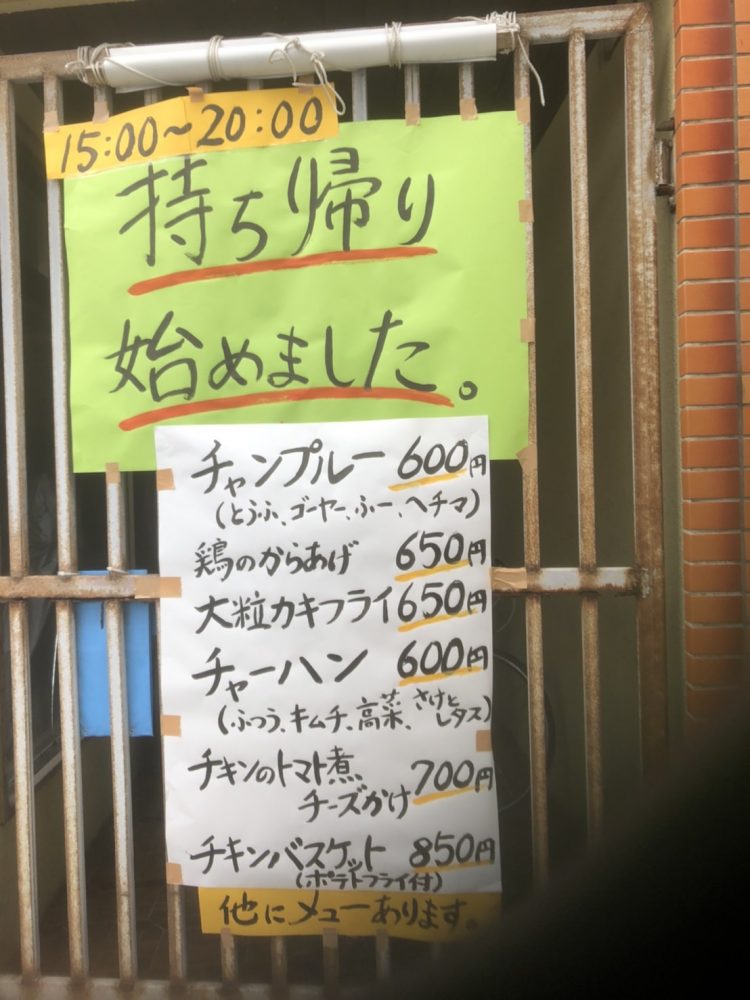 15:00~20:00
持ち帰り
始めました。
チャンプルー 600円
(とうふ、ゴーヤー、ふー、ヘチマ)
鶏のからあげ 650円
大粒カキフライ 650円
チャーハン 600円
(ふつう、キムチ、高菜、さけとレタス)
チキンのトマト煮
チーズかけ 700円
チキンバスケット 850円
(ポテトフライ付)
他にメューあります。